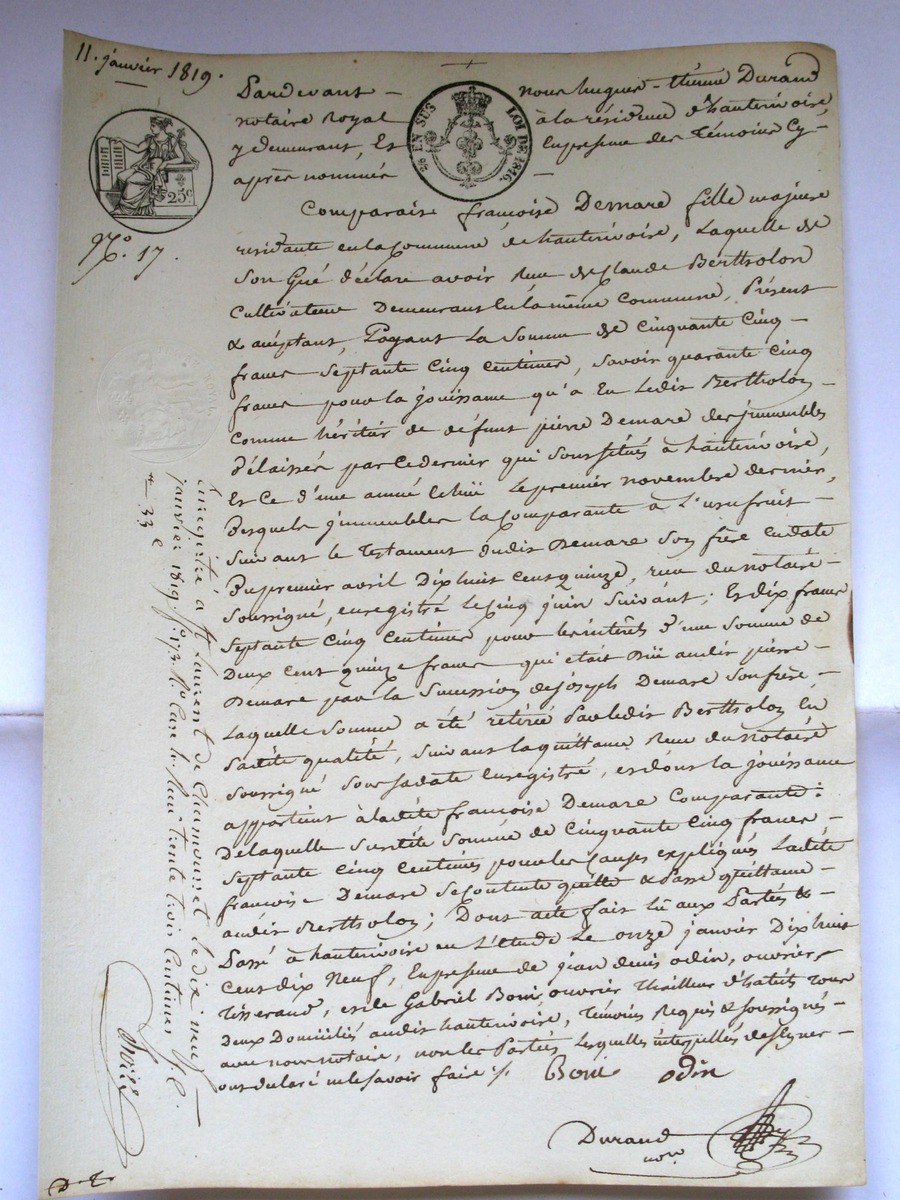 11. janvier 1819.
Pardevant - nous hugues - Etienne Durand
notaire Royal à la résidence d'hauterivoire,
y demeurant, Et En presence des Témoins Cy-
après nommés -
25 EN SUS LOI DE 1816.
25c
No. 17.
Comparait françoise Demare fille majeure
residante en la Commune d'hauterivoire, Laquelle de
Son Gré déclare avoir Reçu de Claude Bertholon
Cultivateur Demeurant En la même Commune, Présent
& acceptant, Payant La Somme de Cinquante Cinq -
francs Septante Cinq Centimes, savoir quarante Cinq
francs pour la jouissance qu'a Eu Ledit Bertholon -
Comme héritier de défunt pierre Demare des jmmeubles
délaissés par ce dernier qui Sont Situés à hauterivoire,
Et Ce d'une année Echüe Le premier novembre dernier,
Desquels jmmeubles la Comparante à L'usufruit -
Suivant le Testament dudit Demare Son frère En date
Du premier avril Dix huit Cent quinze, reçu du notaire -
Soussigné, enregistré le Cinq juin Suivant; Et dix francs
Septante Cinq Centimes pour les intérêts d'une Somme de
Deux Cent quinze francs qui etait düe audit pierre -
Demare par la Succession de joseph Demare Son frère -
Laquelle Somme a été retirée Par ledit Bertholon En
Sadite qualité, Suivant la quittance Reçue du notaire
Soussigné Sous Sa date Enregistré, et dont la jouissance
appartient à la dite françoise Demare Comparante:
De laquelle Susdite Somme de Cinquante Cinq francs -
Septante Cinq Centimes pour les Causes expliqués Ladite
françoise Demare Se Contente quitte & Passe quittance -
audit Bertholon; Dont acte fait Lü aux Parties & -
Passé à hauterivoire en L'étude Le onze janvier Dix huit
Cent dix Neuf, En presence de jean denis odin, ouvrier
Tisserand, et de Gabriel Boni, ouvrier Thailleur d'habits tous
deux Domiciliés audit hauterivoire, Témoins Requis & Soussignés -
avec nous notaire, non les Parties Lesquelles interpellés de signer -
ont declaré ne le Savoir faire ./.
Boni odin
Durand
nore
Enregistré à St Laurent de Chamousset le dix neuf
janvier 1819 fo 173 Ro Case Reçu trente trois Centimes
33 c
D. E.